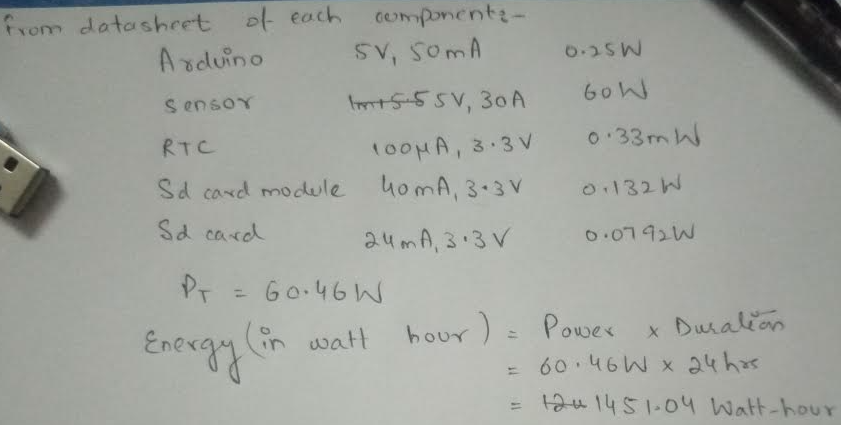 from datasheet of each components:-
Arduino 5V, 50mA 0.25W
Sensor 5V, 30A 60W
RTC 100μA, 3.3V 0.33mW
Sd card module 40mA, 3.3V 0.132W
Sd card 24mA, 3.3V 0.0792W
PT = 60.46W
Energy (in watt hour) = Power x Duration
= 60.46W x 24hrs
= 1451.04 Watt-hour